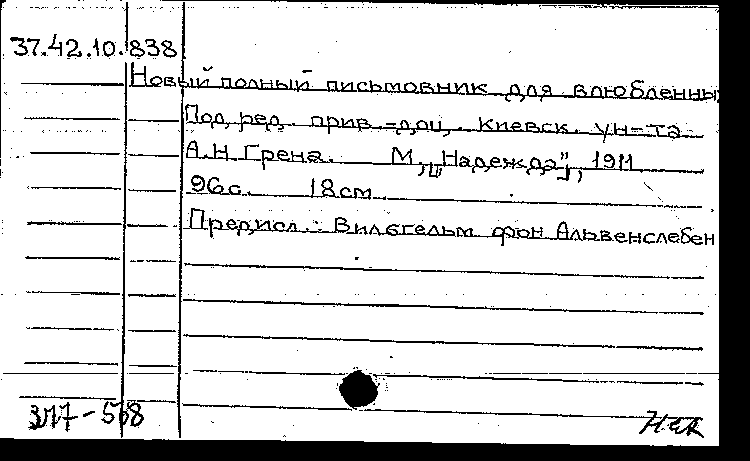 37.42.10.838
Новый полный письмовник для влюбленны
Под ред. прив.-доц. Киевск. ун-та
А.Н Грена. М, „Надежда", 1911
96с. 18см
Предисл.: Вильгельм фон Альвенслебен